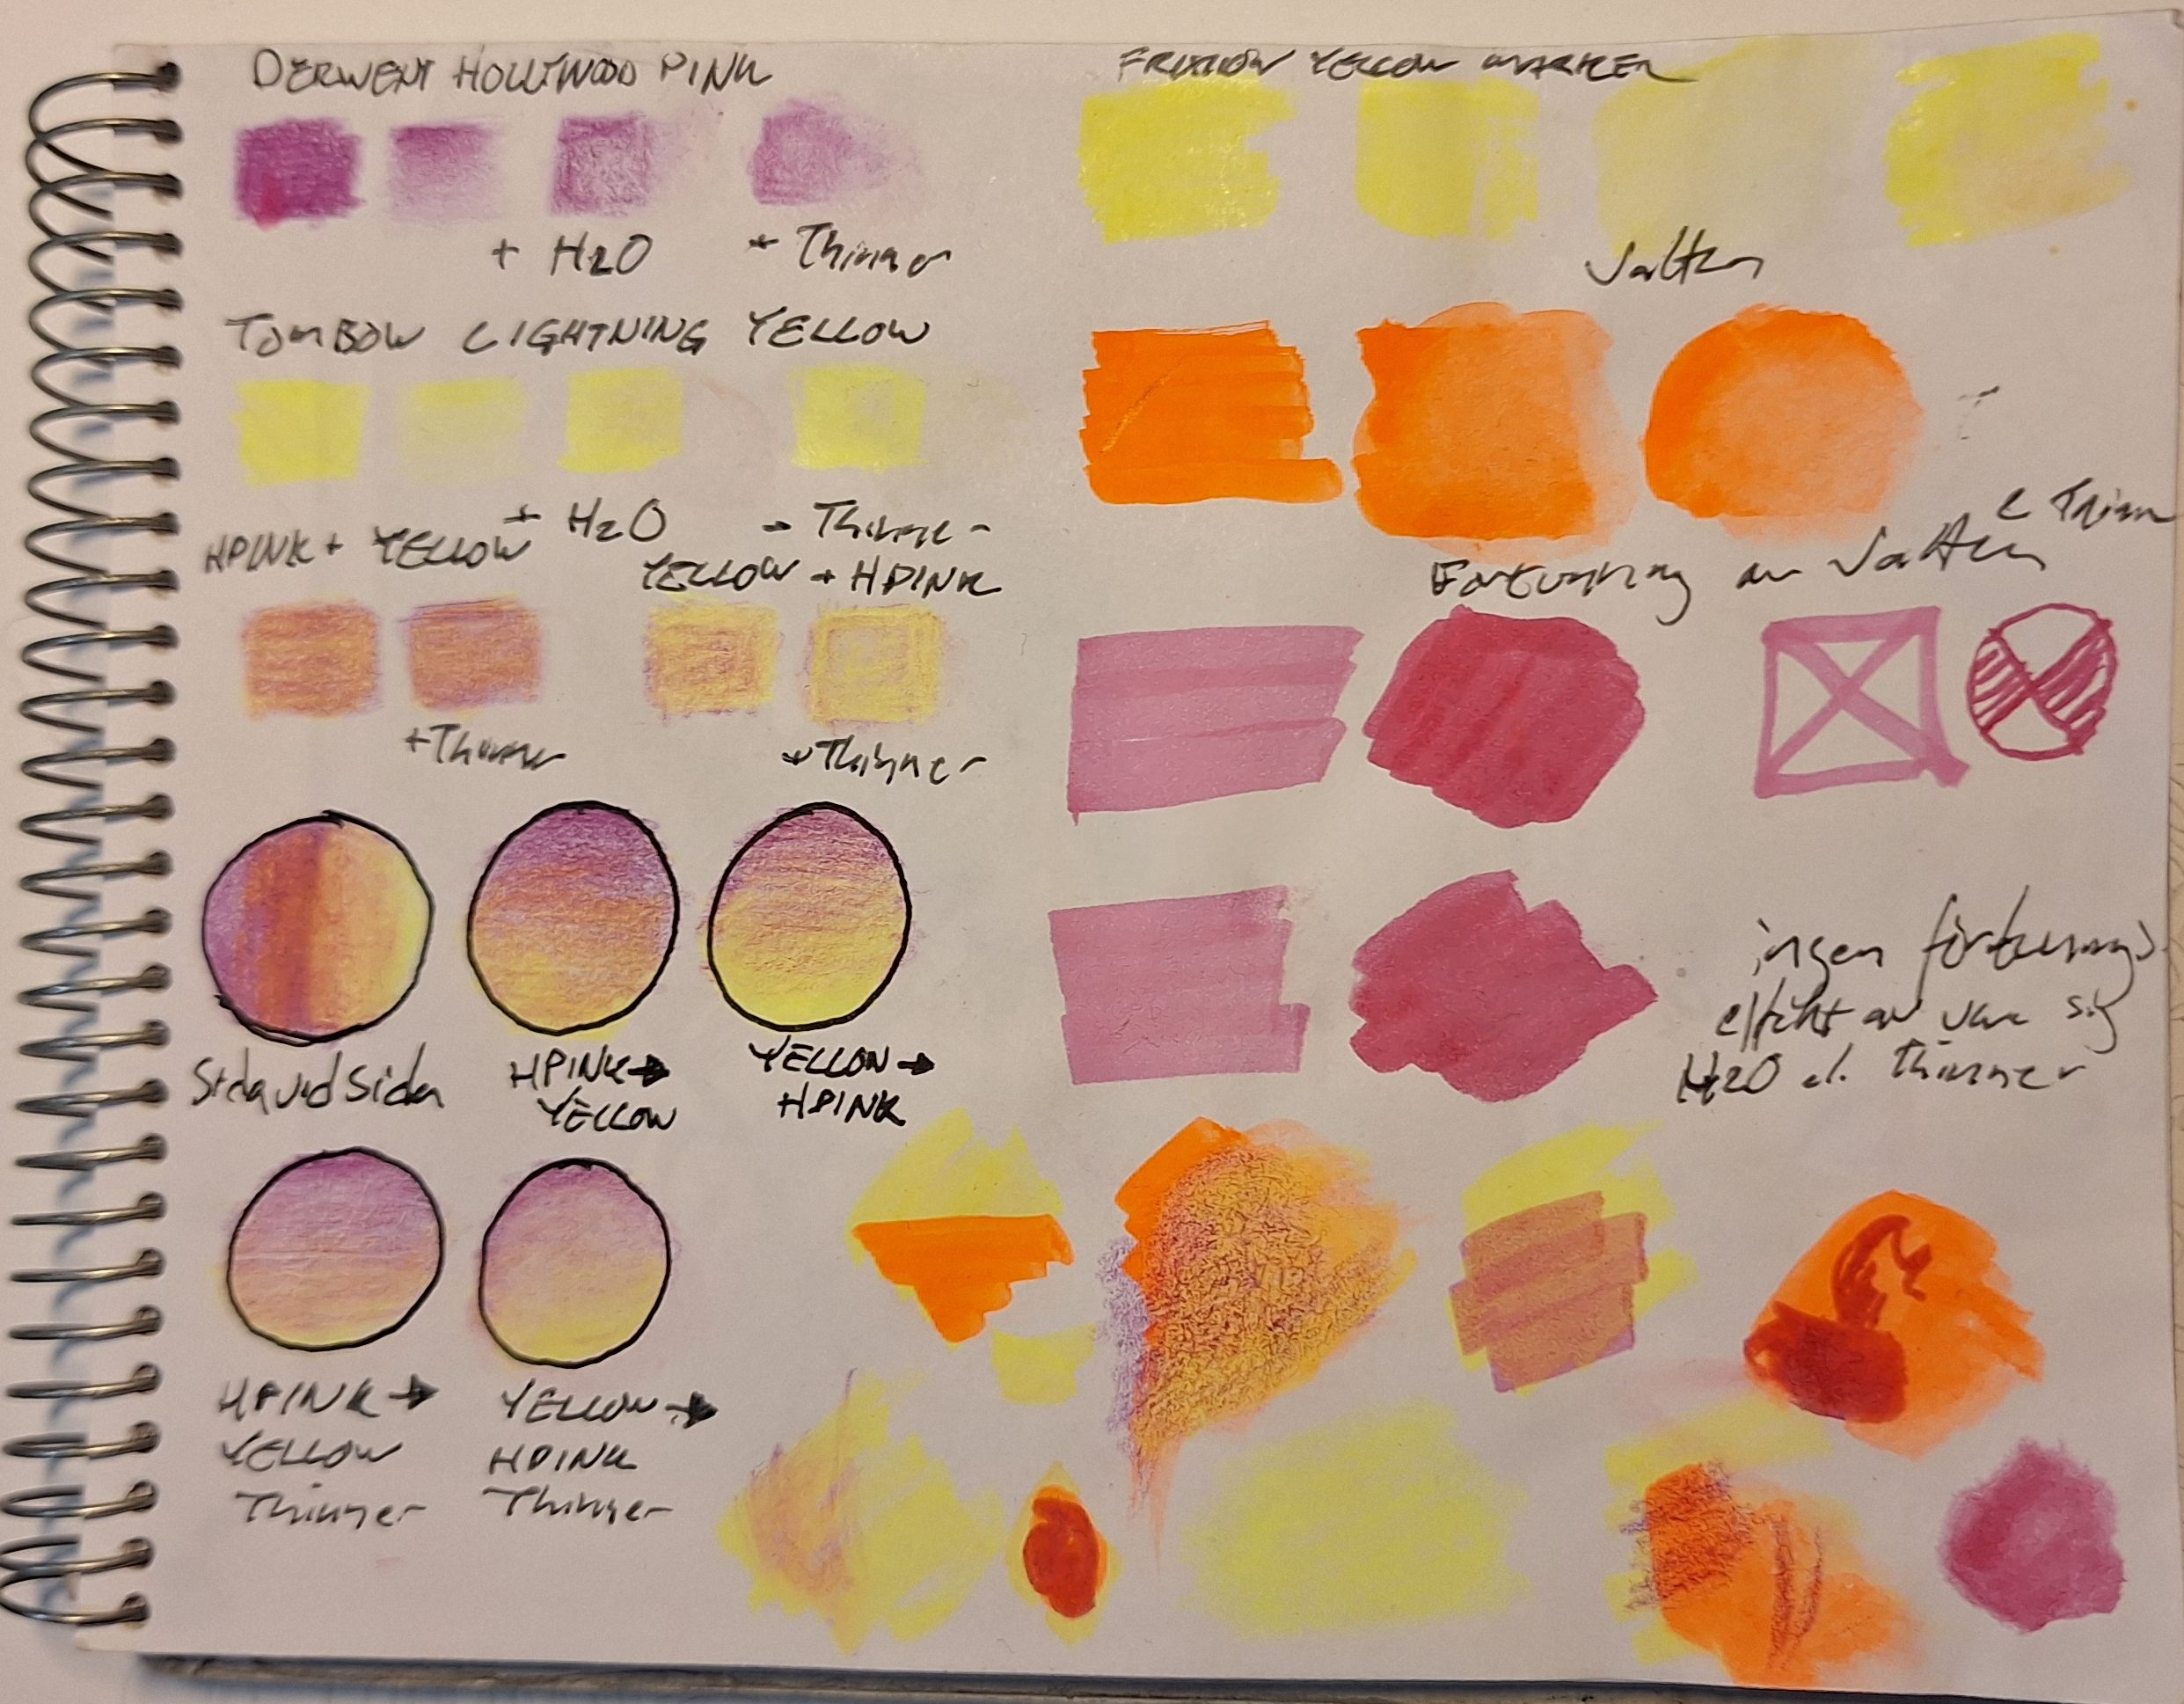 DERWENT HOLLYWOOD PINK
+ H2O + Thinner
TOMBOW LIGHTNING YELLOW
+ H2O + Thinner
HPINK + YELLOW
YELLOW + HPINK
+ Thinner + Thinner
Sida vid Sida
HPINK →
YELLOW
YELLOW →
HPINK
HPINK →
YELLOW
Thinner
YELLOW →
HPINK
Thinner
FRIXION YELLOW MARKER
Vatten
Förtunning av Vatten
ingen förtunnings
effekt av vare sig
H2O el. Thinner